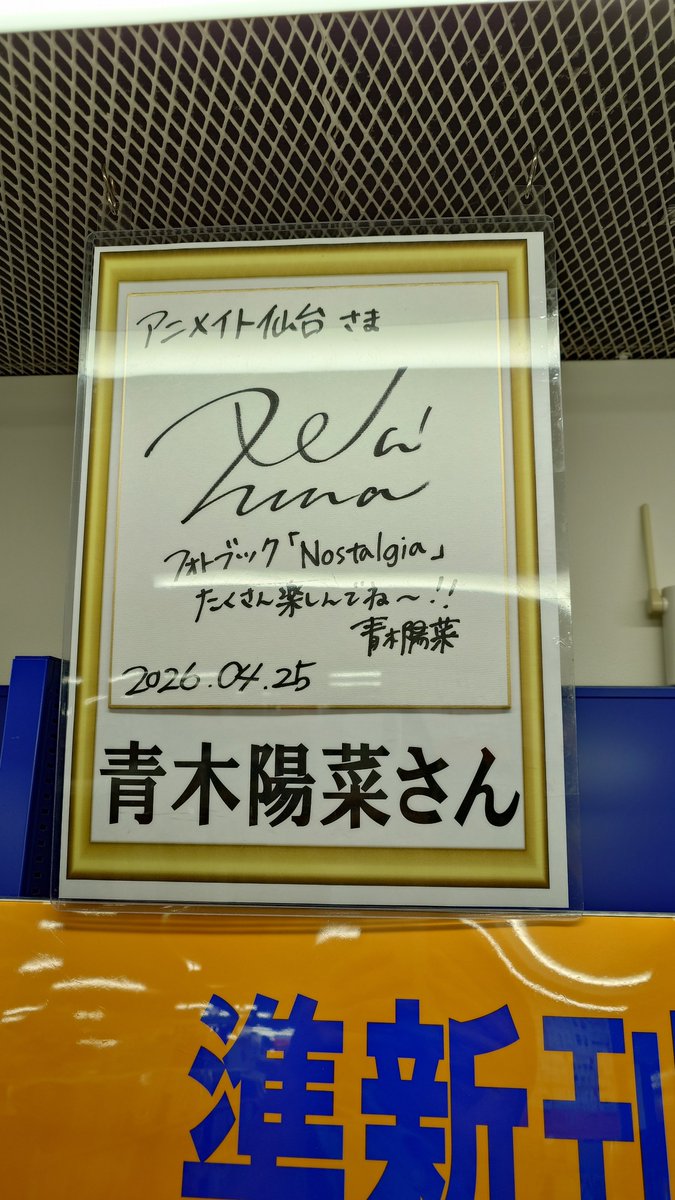 アニメイト仙台 さま
フォトブック「Nostalgia」
たくさん楽しんでね〜!!
青木陽菜
2026.04.25
青木陽菜さん
準新刊